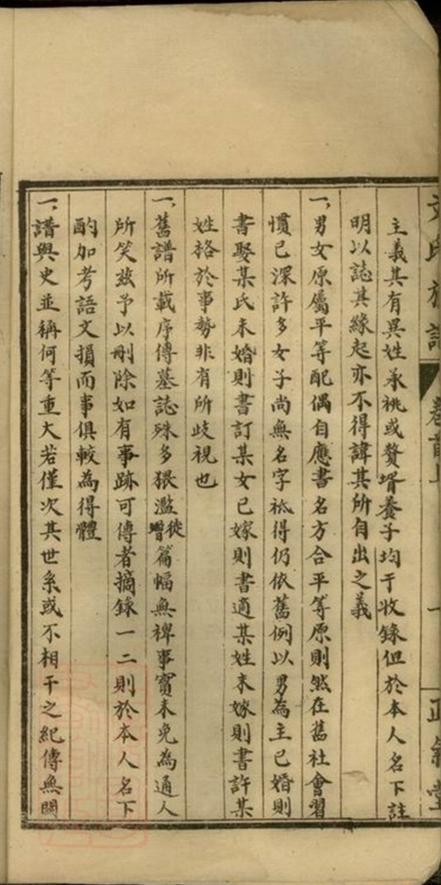 氏族譜 卷首上 一
主義其有異姓承祧或贅壻養子均予收錄但於本人名下註
明以誌其緣起亦不得諱其所自出之義
一、男女原屬平等配偶自應書名方合平等原則然在舊社會習
慣已深許多女子尚無名字祇得仍依舊例以男為主已婚則
書娶某氏未婚則書訂某女已嫁則書適某姓未嫁則書許某
姓格於事勢非有所歧視也
一、舊譜所載序傳墓誌殊多猥濫徒增篇幅無裨事實未免為通人
所笑茲予以刪除如有事跡可傳者摘錄一二則於本人名下
酌加考語文損而事俱較為得體
一、譜與史並稱何等重大若僅次其世系或不相干之紀傳無關